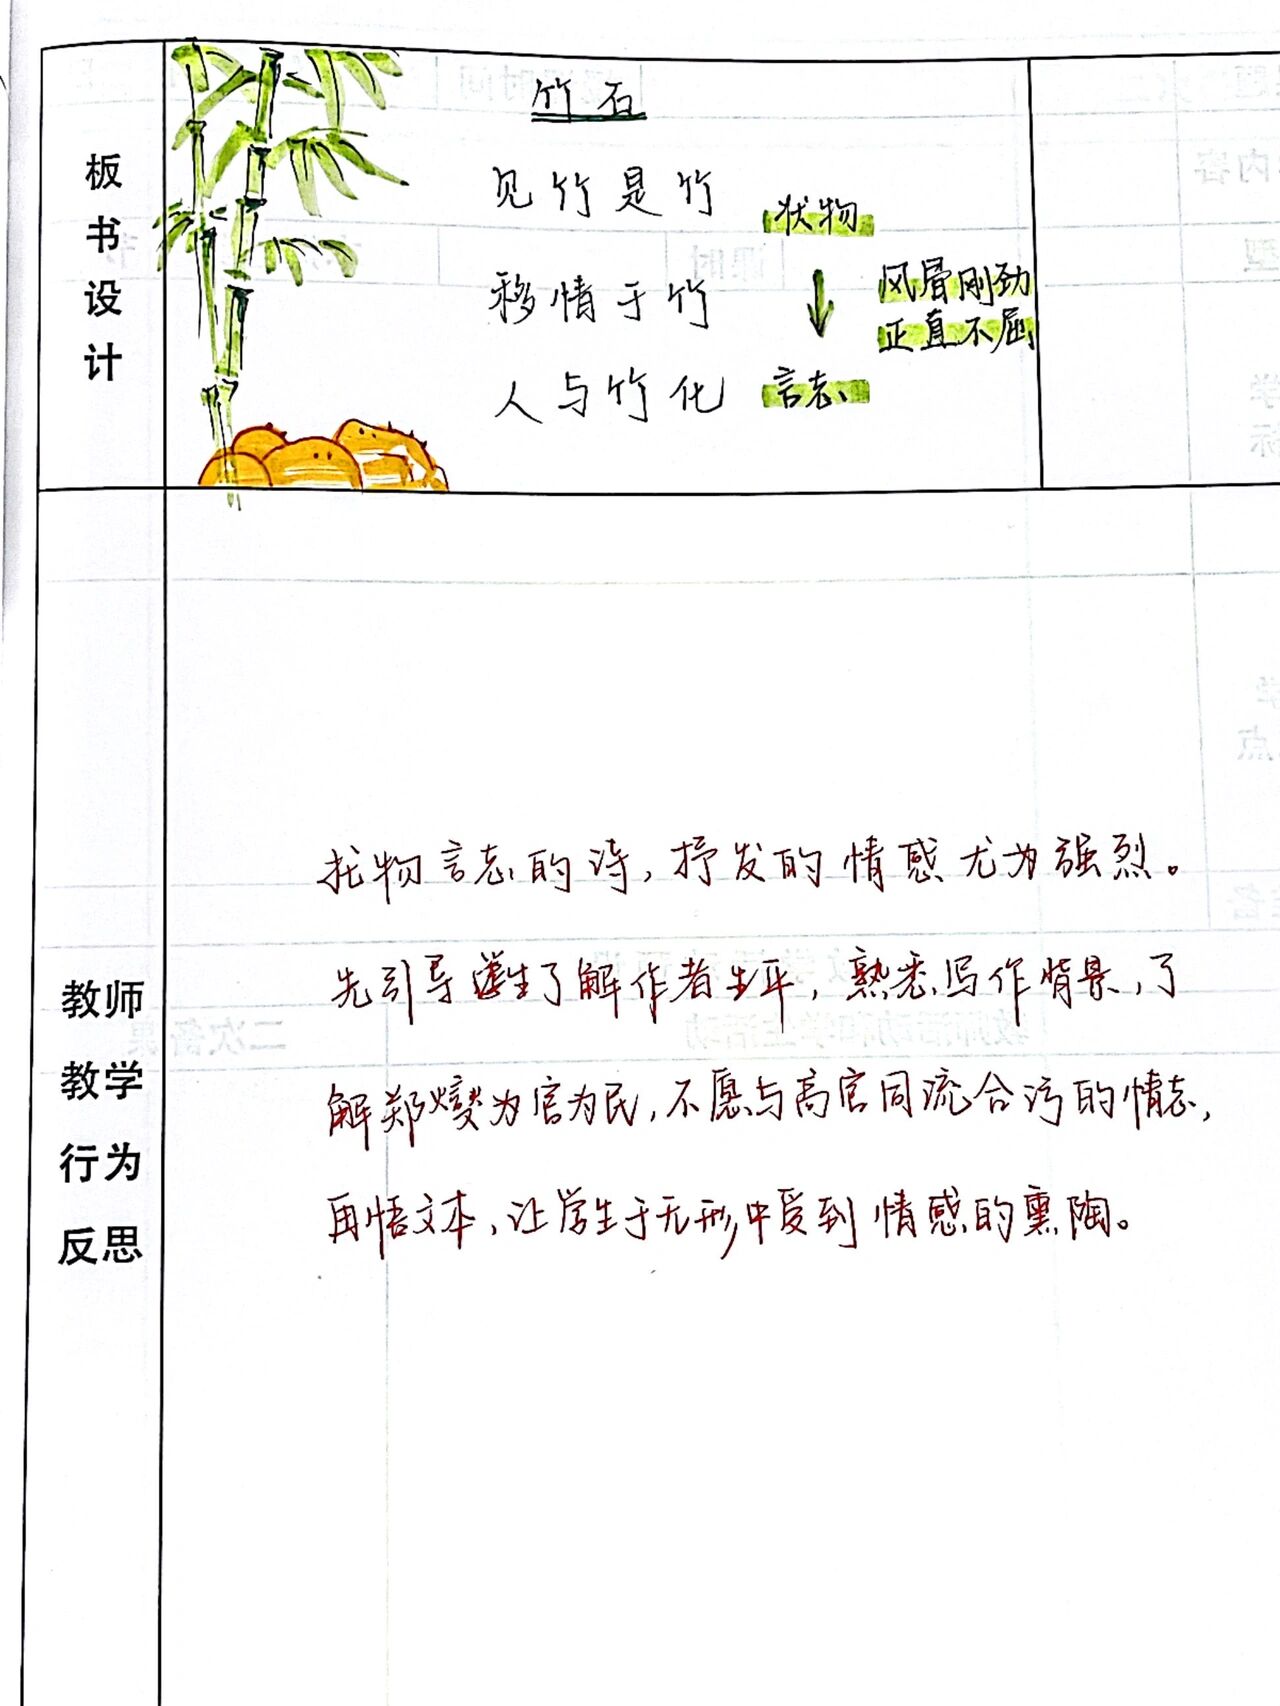 板书设计
竹石
见竹是竹
状物
移情于竹
风骨刚劲
正直不屈
人与竹化
言志
教师教学行为反思
托物言志的诗,抒发的情感尤为强烈。
先引导学生了解作者生平,熟悉写作背景,了
解郑燮为官为民,不愿与高官同流合污的情志,
再悟文本,让学生于无形中受到情感的熏陶。